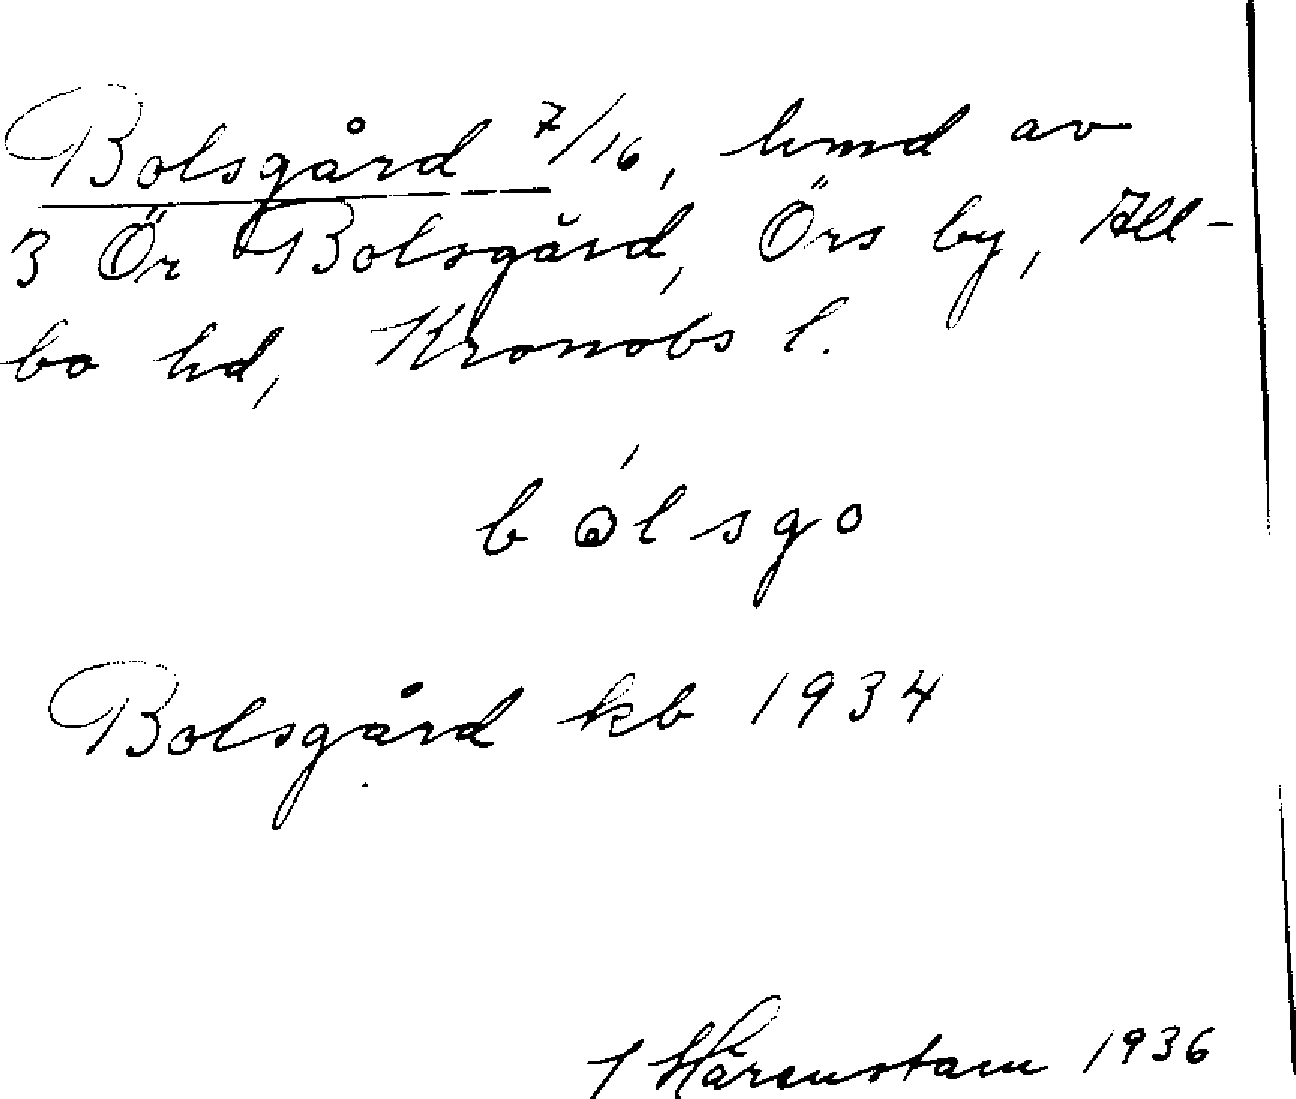 Bolsgård 7/16, hmd av
3 Ör Bolsgård, Örs by, All-
bo hd, Kronobs l.
bólsgo
Bolsgård kb 1934
Härenstam 1936